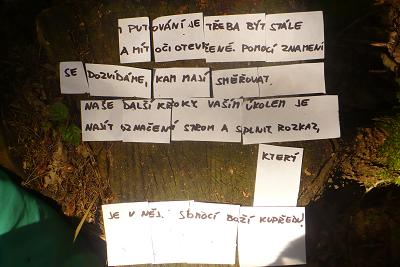 PUTOVÁNÍ JE TŘEBA BÝT STÁLE
A MÍT OČI OTEVŘENÉ. POMOCÍ ZNAMENÍ
SE DOZVÍDÁME, KAM MAJÍ SMĚŘOVAT
NAŠE DALŠÍ KROKY. VAŠIM ÚKOLEM JE
NAJÍT OZNAČENÝ STROM A SPLNIT ROZKAZ,
KTERÝ
JE V NĚJ. S POMOCÍ BOŽÍ KUPŘEDU!